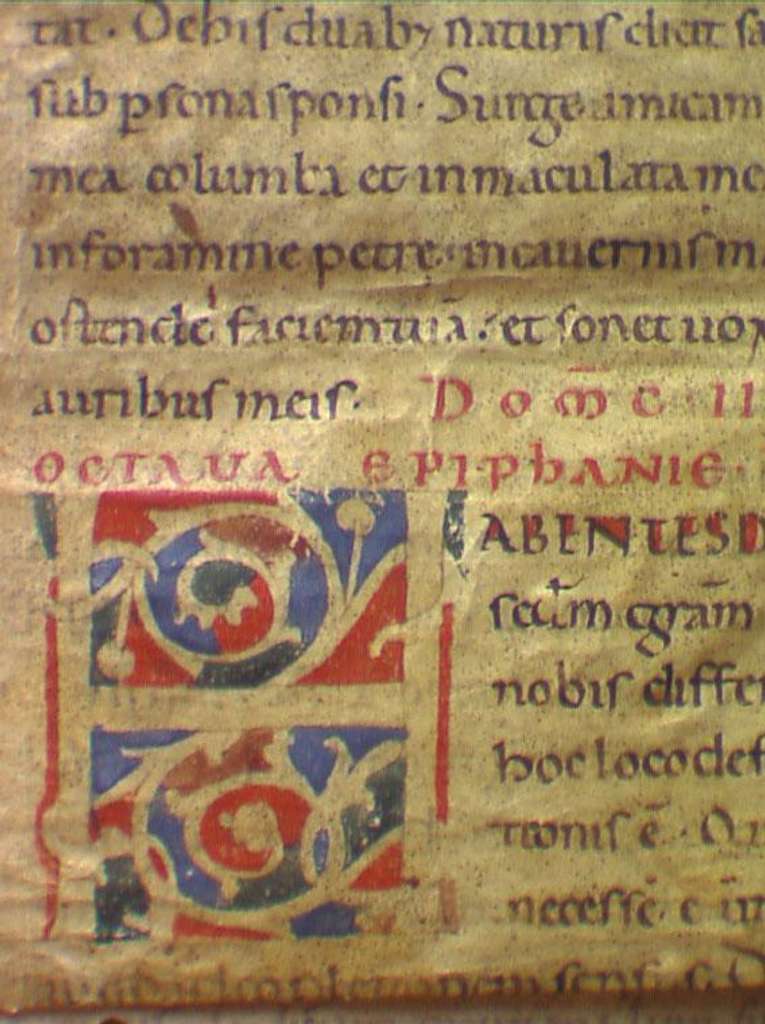 tat. De his duab; naturis dicit sa
sub psona sponsi. Surge amica m
mea columba et inmaculata me
in foramine petre. in cauernis m
ostende faciem tuā. et sonet uox
auribus meis. DOM̄C II
OCTAVA EPIPHANIE.
HABENTES D
scd̄m gr̄am
nobis diffe
hoc loco def
tionis ē. O
necesse. ē